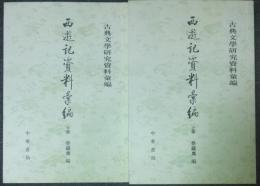 古典文學研究資料彙編
西遊記資料彙編
蔡鐵鷹 編
中華書局
古典文學研究資料彙編
西遊記資料彙編
蔡鐵鷹 編
中華書局